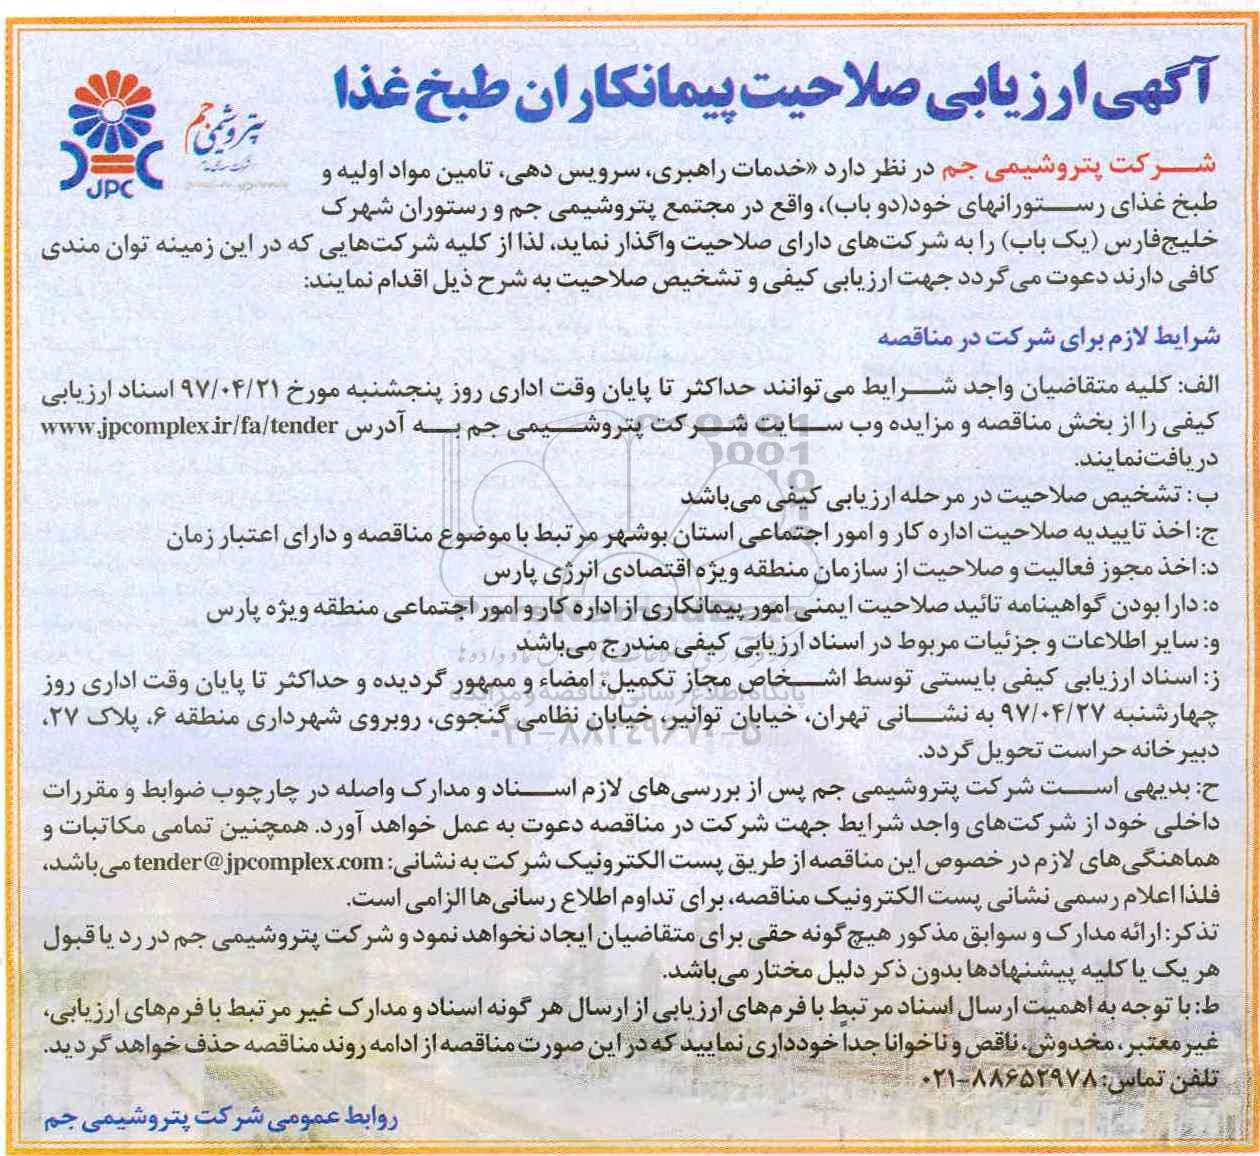 آگهی ارزیابی صلاحیت پیمانکاران طبخ غذا
پتروشیمی جم
JPC
شرکت پتروشیمی جم در نظر دارد «خدمات راهبری، سرویس دهی، تامین مواد اولیه و
طبخ غذای رستورانهای خود(دو باب)، واقع در مجتمع پتروشیمی جم و رستوران شهرک
خلیج‌فارس (یک باب) را به شرکت‌های دارای صلاحیت واگذار نماید، لذا از کلیه شرکت‌هایی که در این زمینه توان مندی
کافی دارند دعوت می‌گردد جهت ارزیابی کیفی و تشخیص صلاحیت به شرح ذیل اقدام نمایند:
شرایط لازم برای شرکت در مناقصه
الف: کلیه متقاضیان واجد شرایط می‌توانند حداکثر تا پایان وقت اداری روز پنجشنبه مورخ ۹۷/۰۴/۲۱ اسناد ارزیابی
کیفی را از بخش مناقصه و مزایده وب سایت شرکت پتروشیمی جم به آدرس www.jpcomplex.ir/fa/tender
دریافت‌نمایند.
ب: تشخیص صلاحیت در مرحله ارزیابی کیفی می‌باشد
ج: اخذ تاییدیه صلاحیت اداره کار و امور اجتماعی استان بوشهر مرتبط با موضوع مناقصه و دارای اعتبار زمان
د: اخذ مجوز فعالیت و صلاحیت از سازمان منطقه ویژه اقتصادی انرژی پارس
ه: دارا بودن گواهینامه تائید صلاحیت ایمنی امور پیمانکاری از اداره کار و امور اجتماعی منطقه ویژه پارس
و: سایر اطلاعات و جزئیات مربوط در اسناد ارزیابی کیفی مندرج می‌باشد
ز: اسناد ارزیابی کیفی بایستی توسط اشخاص مجاز تکمیل، امضاء و ممهور گردیده و حداکثر تا پایان وقت اداری روز
چهارشنبه ۹۷/۰۴/۲۷ به نشانی تهران، خیابان توانیر، خیابان نظامی گنجوی، روبروی شهرداری منطقه ۶، پلاک ۲۷،
دبیرخانه حراست تحویل گردد.
ح: بدیهی است شرکت پتروشیمی جم پس از بررسی‌های لازم اسناد و مدارک واصله در چارچوب ضوابط و مقررات
داخلی خود از شرکت‌های واجد شرایط جهت شرکت در مناقصه دعوت به عمل خواهد آورد. همچنین تمامی مکاتبات و
هماهنگی‌های لازم در خصوص این مناقصه از طریق پست الکترونیک شرکت به نشانی: tender@jpcomplex.com می‌باشد،
فلذا اعلام رسمی نشانی پست الکترونیک مناقصه، برای تداوم اطلاع رسانی‌ها الزامی است.
تذکر: ارائه مدارک و سوابق مذکور هیچ‌گونه حقی برای متقاضیان ایجاد نخواهد نمود و شرکت پتروشیمی جم در رد یا قبول
هر یک یا کلیه پیشنهادها بدون ذکر دلیل مختار می‌باشد.
ط: با توجه به اهمیت ارسال اسناد مرتبط با فرم‌های ارزیابی از ارسال هر گونه اسناد و مدارک غیر مرتبط با فرم‌های ارزیابی،
غیرمعتبر، مخدوش، ناقص و ناخوانا جداً خودداری نمایید که در این صورت مناقصه از ادامه روند مناقصه حذف خواهد گردید.
تلفن تماس: ۸۸۶۵۲۹۷۸-۰۲۱
روابط عمومی شرکت پتروشیمی جم
پایگاه اطلاع رسانی مناقصه و مزایده
۰۲۱-۸۸۳۴۹۶۷۰-۵